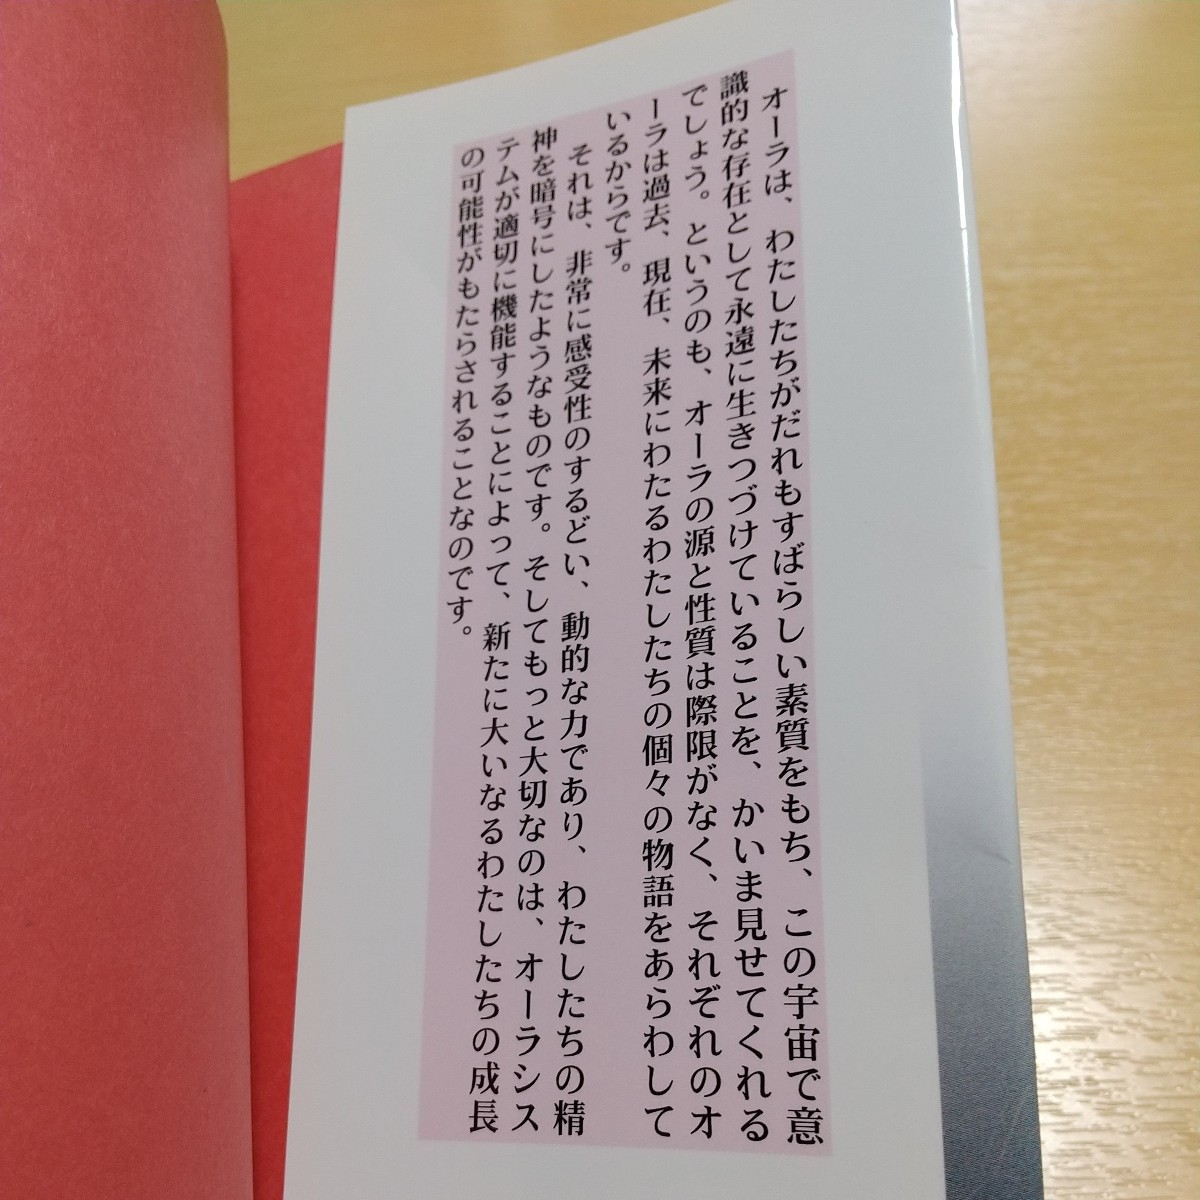 オーラは、わたしたちがだれもすばらしい素質をもち、この宇宙で意
識的な存在として永遠に生きつづけていることを、かいま見せてくれる
でしょう。というのも、オーラの源と性質は際限がなく、それぞれのオ
ーラは過去、現在、未来にわたるわたしたちの個々の物語をあらわして
いるからです。
それは、非常に感受性のするどい、動的な力であり、わたしたちの精
神を暗号にしたようなものです。そしてもっと大切なのは、オーラシス
テムが適切に機能することによって、新たに大いなるわたしたちの成長
の可能性がもたらされることなのです。